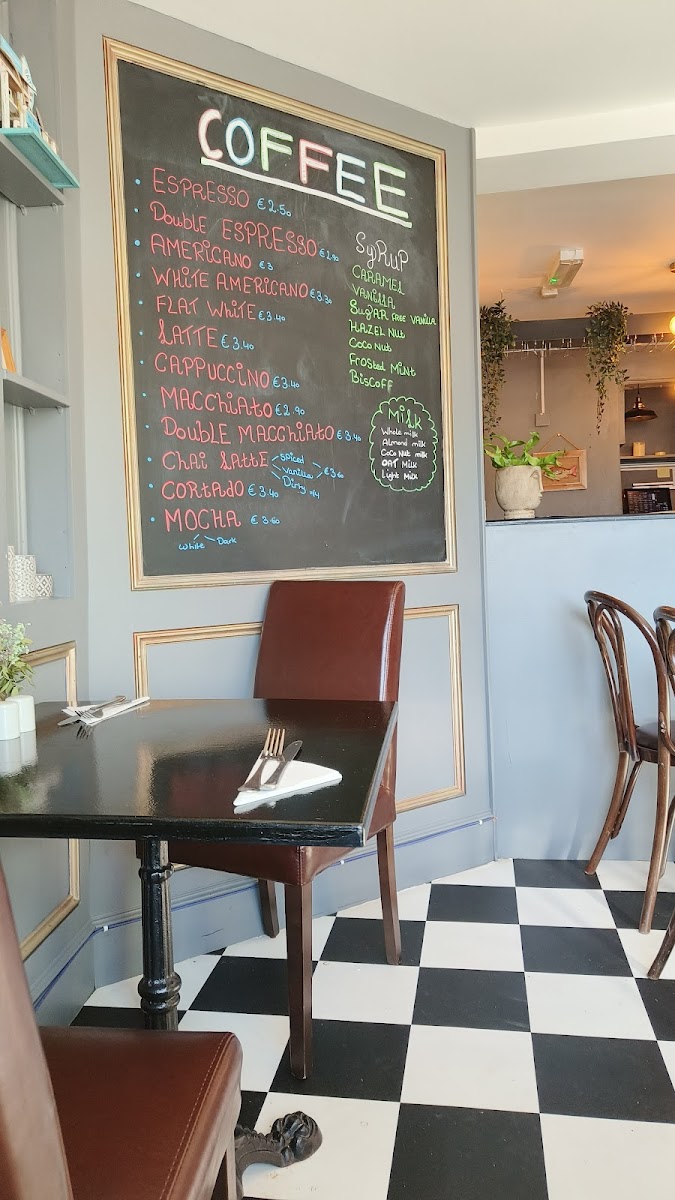 COFFEE
• ESPRESSO €2.50
• Double ESPRESSO €2.90
• AMERICANO €3
• WHITE AMERICANO €3.30
• FLAT WHITE €3.40
• LATTE €3.40
• CAPPUCCINO €3.40
• MACCHIATO €2.90
• Double MACCHIATO €3.40
• CHAI LATTE Spiced Vanilla Dirty €3.60
• CORTADO €3.40
• MOCHA €3.60
White Dark
SyRUP
CARAMEL
VANILLA
SugAR FREE VANILLA
HAZEL NUT
COCO NUT
FROSTED MINT
BISCOFF
MILK
Whole milk
Almond milk
CoCo NuT milk
OAT MILK
Light MILK